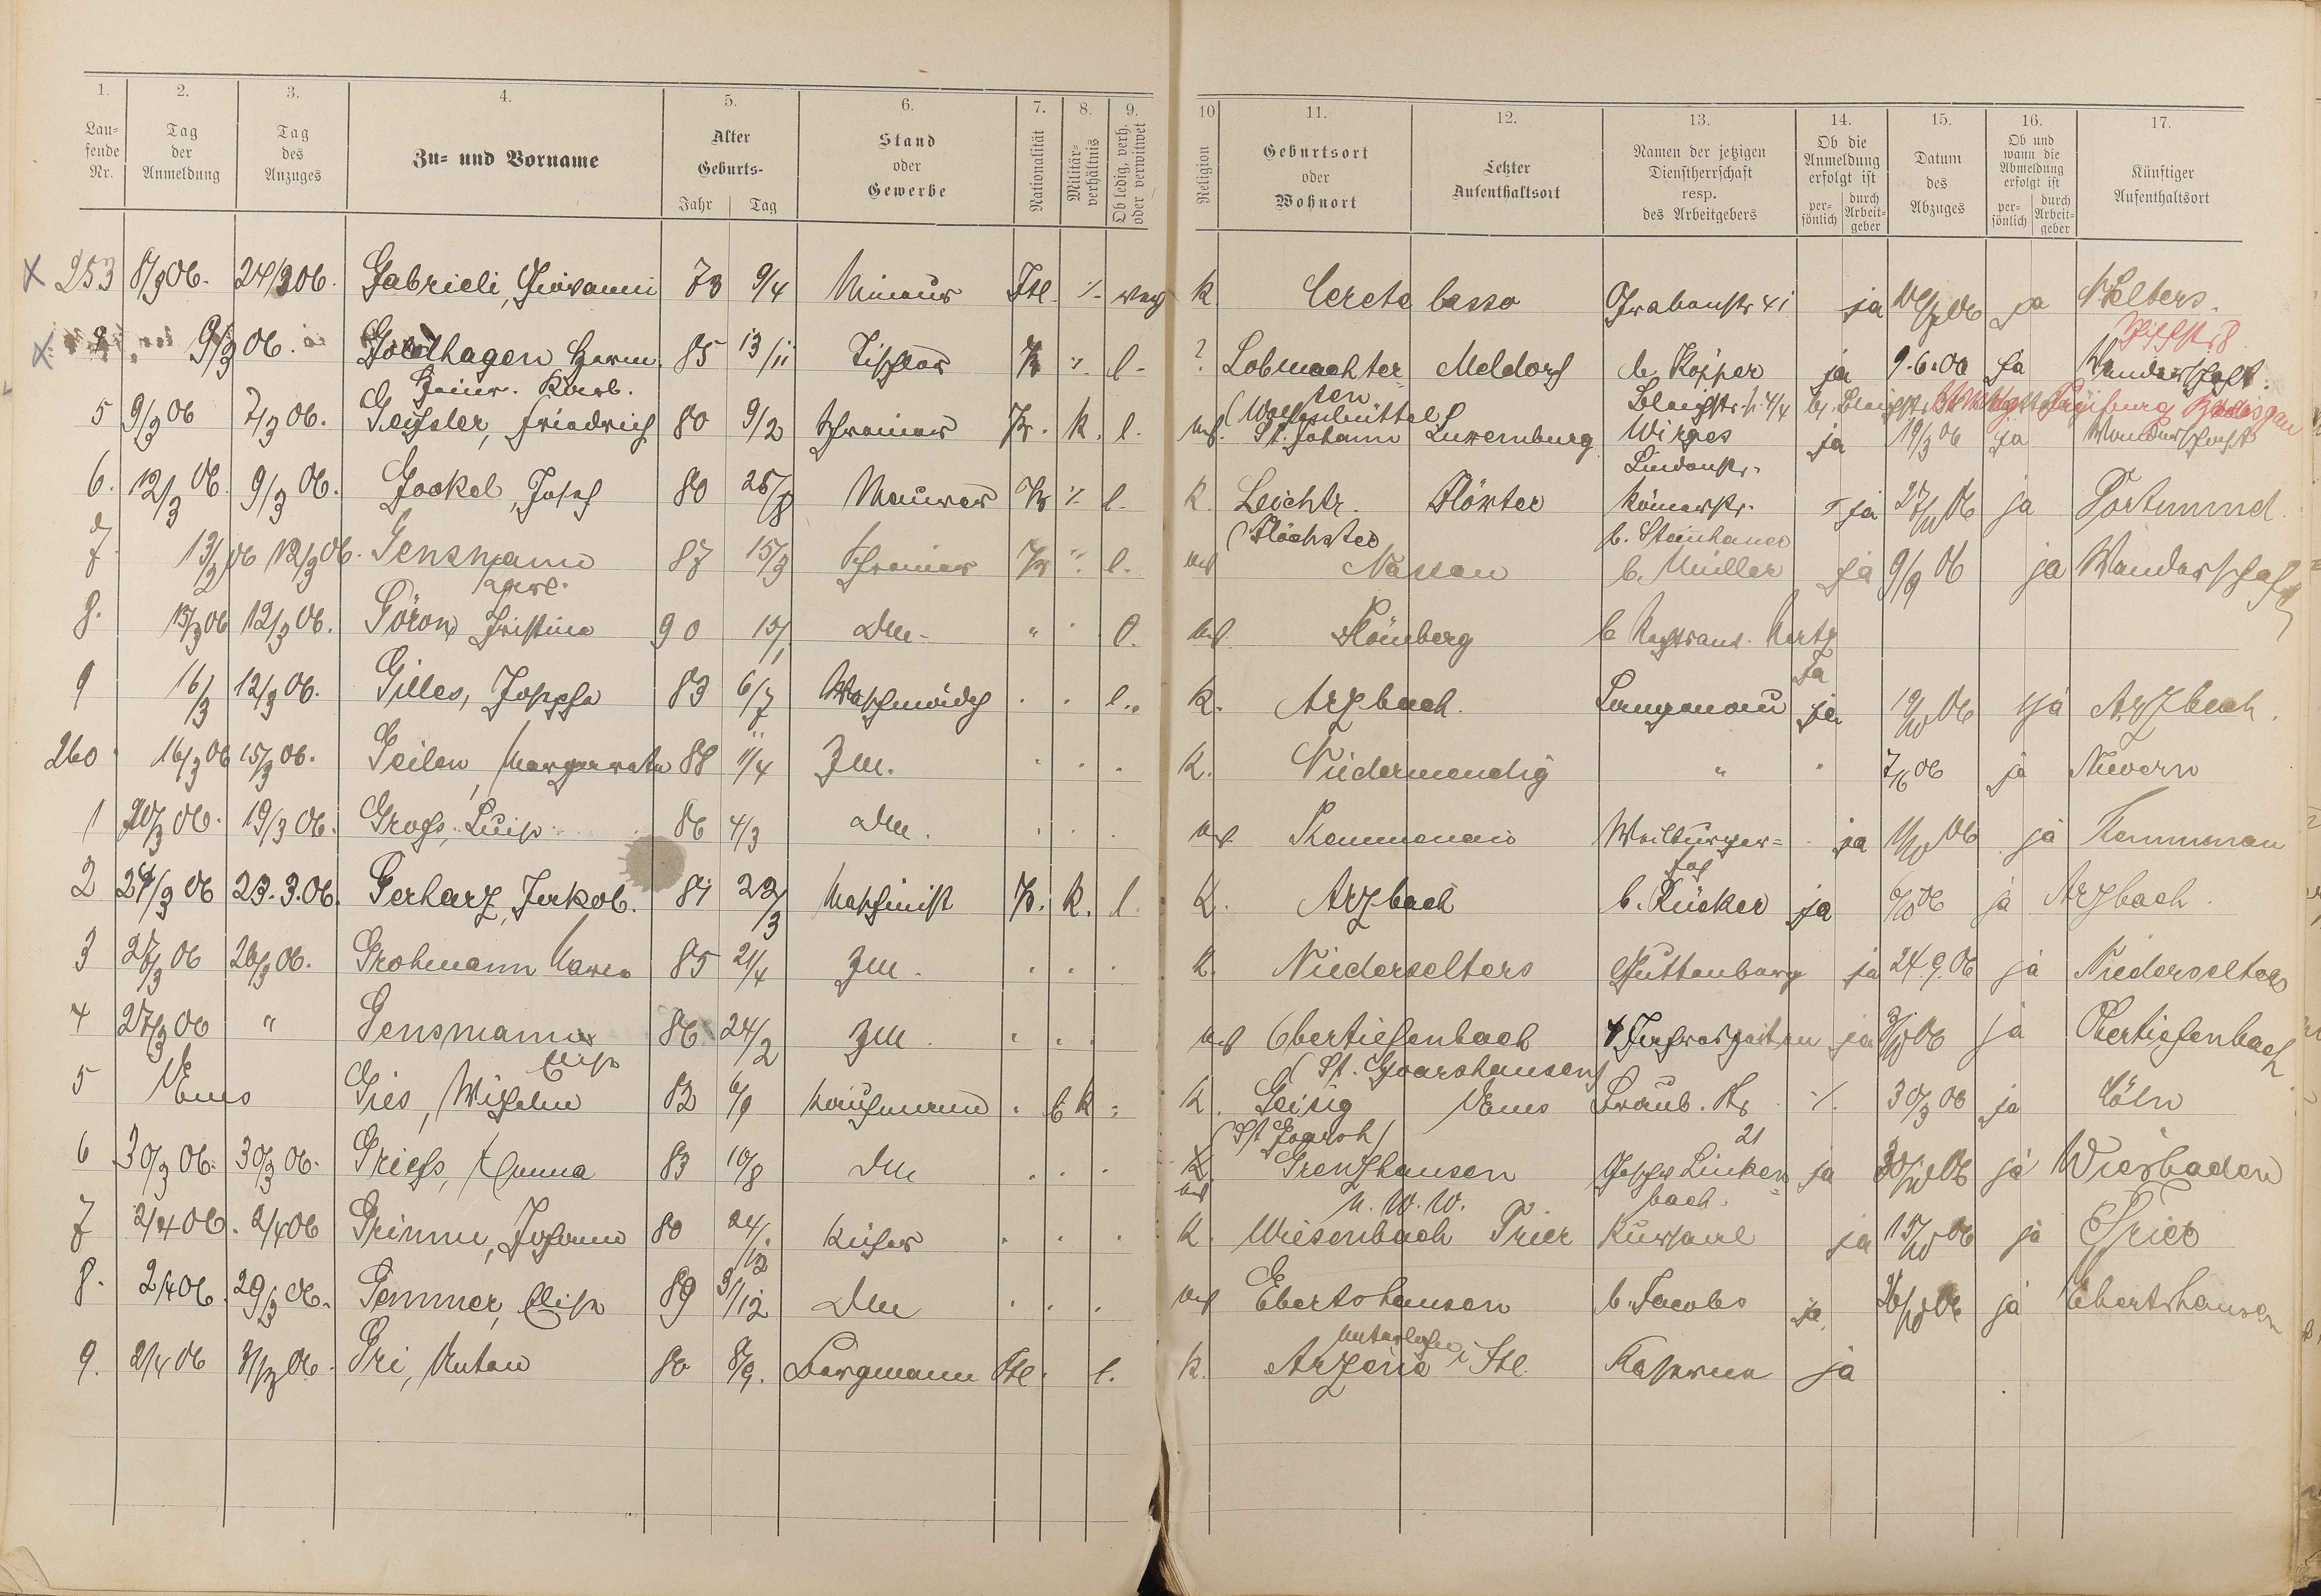 1. 2. 3. 4. 5. 6. 7. 8. 9. 10 11. 12. 13. 14. 15. 16. 17.
Lau-
fende
Nr.
Tag
der
Anmeldung
Tag
des
Anzuges
Zu- und Vorname
Alter
Geburts-
Jahr Tag
Stand
oder
Gewerbe
Nationalität
Militär-
verhältnis
Ob ledig, verh.
oder verwitwet
Religion
Geburtsort
oder
Wohnort
Letzter
Aufenthaltsort
Namen der jetzigen
Dienstherrschaft
resp.
des Arbeitgebers
Ob die
Anmeldung
erfolgt ist
per-
sönlich
durch
Arbeit-
geber
Datum
des
Abzuges
Ob und
wann die
Abmeldung
erfolgt ist
per-
sönlich
durch
Arbeit-
geber
Künftiger
Aufenthaltsort
x 253 8/3 06. 24/3 06. Gabrieli, Giovanni 73 9/4 Mineur Itl. ·/. K. Cereta basso Grabenstr 41 ja ja Selters.
x 9/3 06. Goldhagen Herm. 85 13/11 Tischler Pr ·/. l. ? Lobmachter Meldorf b. Kösper ja 9.6.06 ja Wanderschaft.
Heinr. Karl. ten
5 9/3 06 7/3 06. Geissler, Friedrich 80 9/2 Schreiner Pr. K. l. St. Johann Luxemburg Wirges ja 19/3 06 ja Wanderschaft
Lindenstr.
6. 12/3 06. 9/3 06. Gockel, Josef 80 26/8 Maurer Pr ·/. l. K. Leichtr. Höxter Römerstr. ja 27/11 06 ja Dortmund
(Höchster b. Steinhauer
7. 13/3 06 12/3 06. Gensmann 87 15/3 Schreiner Pr ·/. l. ev Nassau b. Müller ja 9/9 06 ja Wanderschaft
Karl.
8. 13/3 06 12/3 06. Göron Christine 90 15/1 Dm " l. ev. Hömberg b
9 16/3 12/3 06. Gilles, Josefa 83 6/7 Waschmädch l. K. Arzbach. Langenau ja 19/10 06 ja Arzbach.
260 16/3 06 15/3 06. Geilen, Margareta 88 11/4 Zm. K. Niedermendig " 7/6 06 ja Nievern
1 20/3 06. 19/3 06. Gross, Luise 86 4/3 Dm. ev. Kemmenau Weilburger- ja 11/10 06 ja Kemmenau
hof
2 24/3 06 23.3.06. Gerharz, Jakob. 81 23/3 Maschinist Pr. K. l. K. Arzbach b. Rücker ja 6/10 06 ja Arzbach.
3 27/3 06 26/3 06. Grohmann Maria 85 21/4 Zm. K. Niederselters Guttenberg ja 24.9.06 ja Niederselters
4 27/3 06 " Gensmann 86 24/2 Zm. ev Obertiefenbach 4 Jahreszeiten ja 3/10 06 ja Obertiefenbach
Elise (St. Goarshausen)
5 Ems Gies, Wilhelm 82 6/9 Kaufmann K. Geisig Ems Traub. Str ·/. 30/3 06 ja Cöln
(St Goarsh) 21
6 30/3 06. 30/3 06. Griess, Emma 83 10/8 Dm K ev Grenzhausen Geschw Linken ja 30/10 06 ja Wiesbaden
U. W. W. bach.
7 2/4 06. 2/4 06 Grimm, Johann 80 24/12 Küfer K. Wiesenbach Trier Kursaal ja 15/10 06 ja Trier
8. 2/4 06. 29/3 06. Gemmer, Elise 89 31/12 Dm ev Ebertshausen b. Jacobs ja. ja Ebertshausen
9. 2/4 06 31/3 06. Gri, Anton 80 8/9. Bergmann Itl. l. K. Arzene i Itl. Kaserne ja